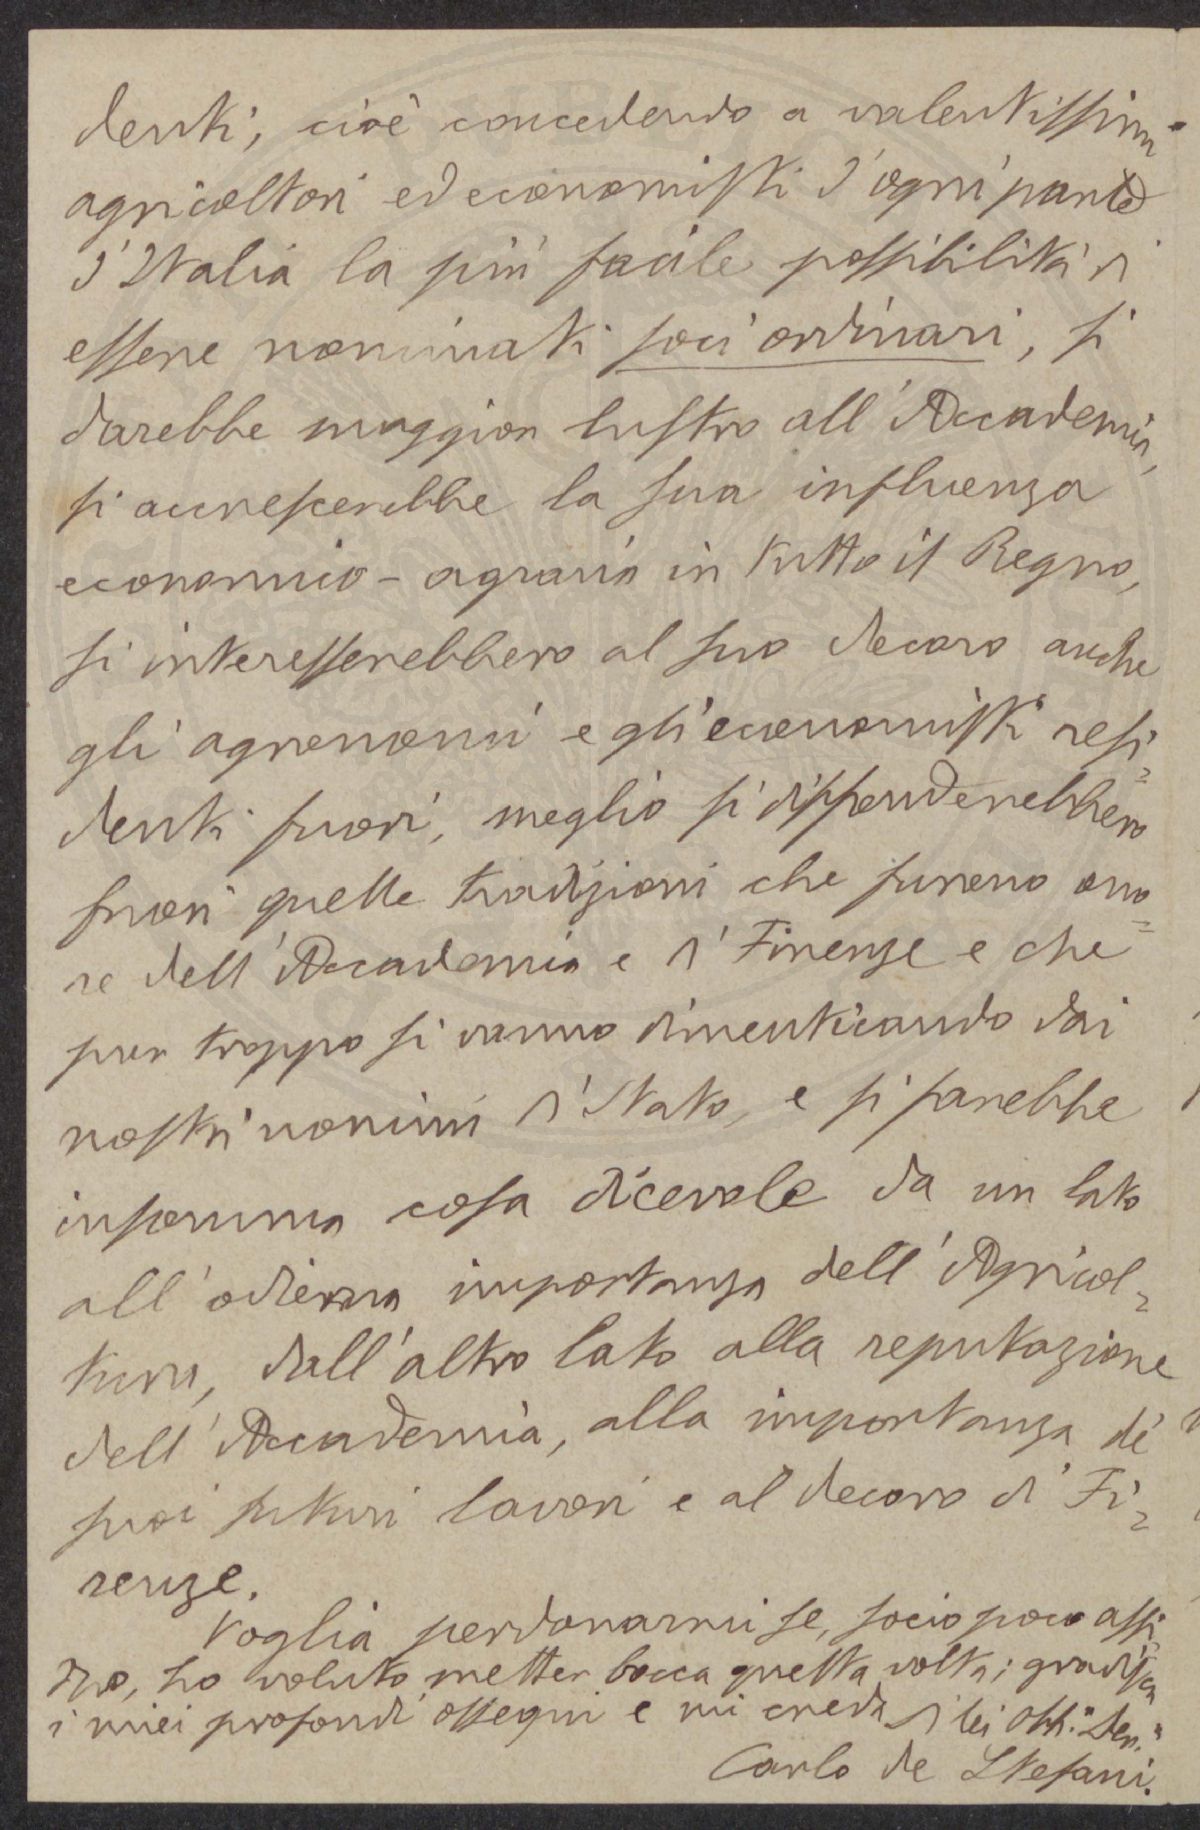 denti, cioè concedendo a valentissimi
agricoltori ed economisti d'ogni parte
d'Italia la più facile possibilità di
essere nominati soci ordinari, si
darebbe maggior lustro all'Accademia,
si accrescerebbe la sua influenza
economico-agraria in tutto il Regno,
si interesserebbero al suo decoro anche
gli agronomi e gli economisti resi=
denti fuori, meglio si difonderebbero
fuori quelle tradizioni che furono ono=
re dell'Accademia e di Firenze e che
pur troppo si vanno dimenticando dai
nostri uomini di Stato, e si farebbe
insomma cosa dicevole da un lato
all'odierna importanza dell'Agricol=
tura, dall'altro lato alla reputazione
dell'Accademia, alla importanza de'
suoi futuri lavori e al decoro di Fi=
renze.
Voglia perdonarmi se, socio poco assi
duo, ho voluto metter bocca questa volta; gradisca
i miei profondi ossequi e mi creda di lei Obb.º Dev.º
Carlo de Stefani.